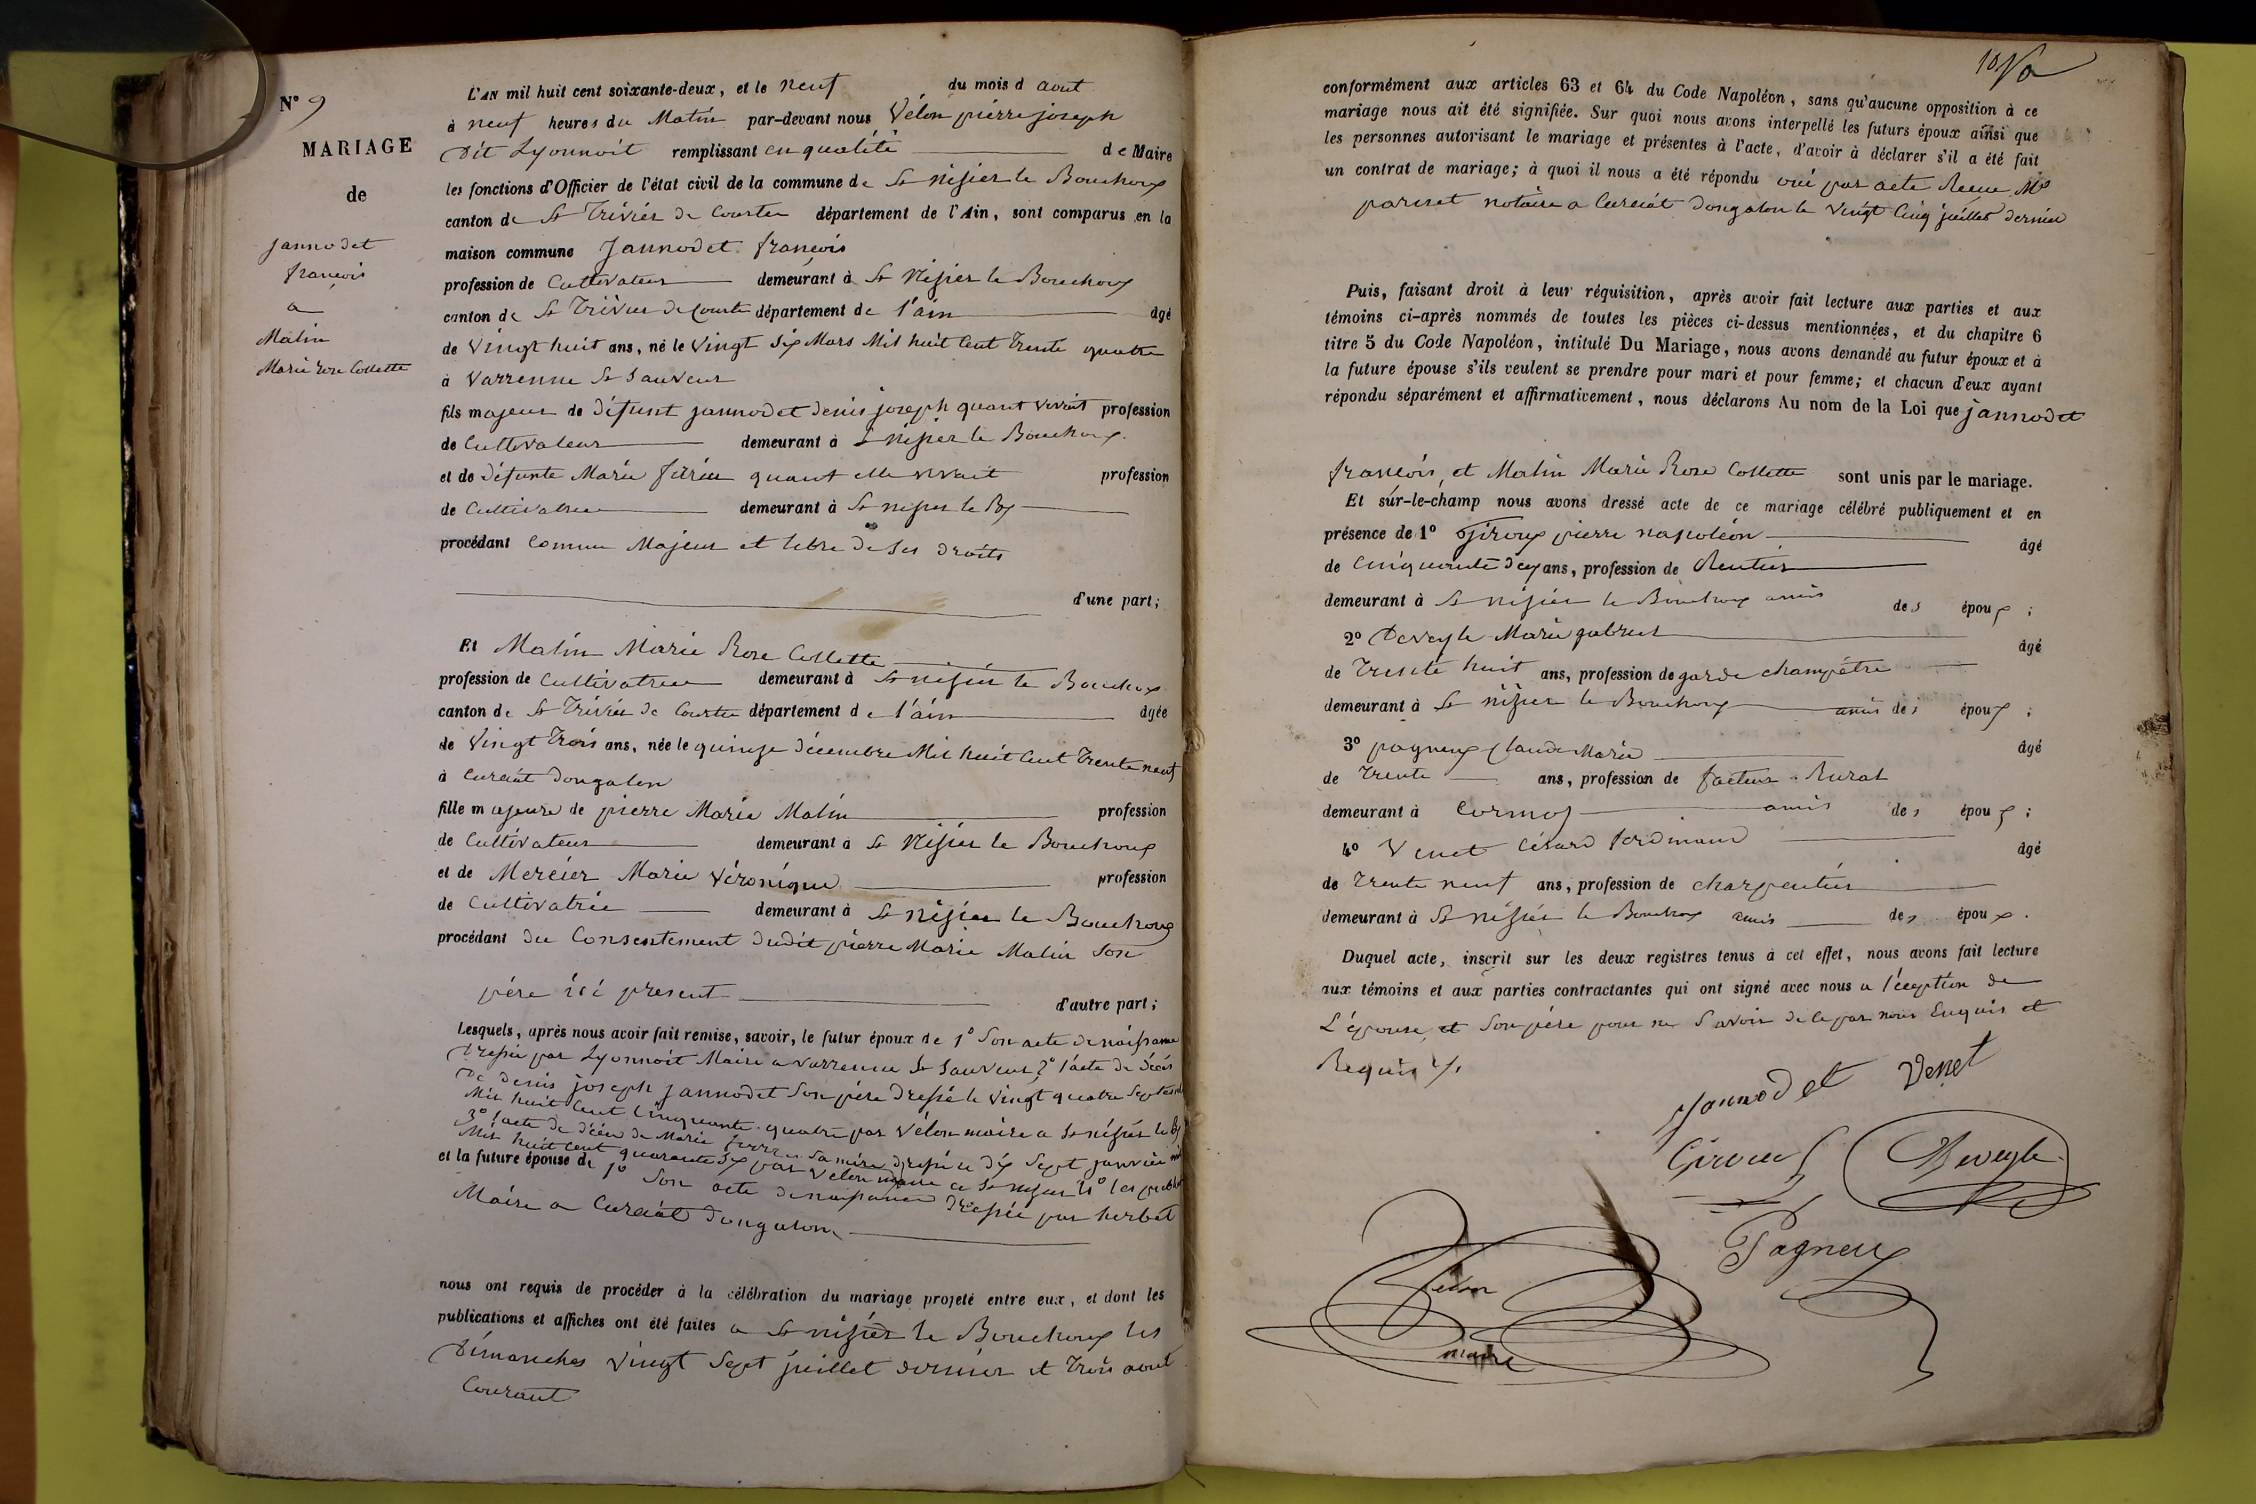 N° 9
MARIAGE
de
jannodet
françois
a
Matin
Marie rose Collette
L'AN mil huit cent soixante-deux, et le neuf du mois d aout
à neuf heures du Matin par-devant nous Vélon pierre joseph
Dit Lyonnoit remplissant en qualité de Maire
les fonctions d'Officier de l'état civil de la commune de St nisier le Bouchoux
canton de St Trivier de Courtes département de l'Ain, sont comparus en la
maison commune Jannodet françois
profession de Cultivateur demeurant à St Nisier le Bouchoux
canton de St Trivier de Courte département de l'ain âgé
de Vingt huit ans, né le Vingt Six Mars Mil huit Cent Trente quatre
à Varrenne St Sauveur
fils majeur de défunt jannodet denis joseph quant vivait profession
de Cultivateur demeurant à St nisier le Bouchoux
et de défunte Marie quant elle vivait profession
de Cultivatrice demeurant à St nisier le Bx
procédant Comme Majeur et libre de Ses droits
d'une part;
Et Matin Marie Rose Collette
profession de Cultivatrice demeurant à St nisier le Bouchoux
canton de St Trivier de Courtes département de l'ain âgée
de Vingt Trois ans, née le quinze décembre Mil huit Cent Trente neuf
à Curciat dongalon
fille majeure de pierre Marie Matin profession
de Cultivateur demeurant à St Nisier le Bouchoux
et de Mercier Marie Véronique profession
de Cultivatrice demeurant à St Nisier le Bouchoux
procédant du Consentement dudit pierre Marie Matin Son
père ici present d'autre part;
Lesquels, après nous avoir fait remise, savoir, le futur époux de 1° Son acte de naissance
Dressée par Lyonnoit Maire a varrenne St Sauveur 2° l'acte de décès
De denis joseph jannodet Son père Dressé le Vingt quatre Septembre
Mil huit Cent Cinquante quatre par Vélon maire a St nisier le Bx
3° l'acte de décès de Marie Sa mère dressé le dix Sept janvier
Mil huit Cent quarante Six par Velon maire a St nisier 4° les
et la future épouse de 1° Son acte de naissance dressée par herbet
Maire a Curciat dongalon
nous ont requis de procéder à la célébration du mariage projeté entre eux, et dont les
publications et affiches ont été faites a St nisier le Bouchoux les
Dimanches Vingt Sept juillet dernier et Trois aout
Courant
10
conformément aux articles 63 et 64 du Code Napoléon, sans qu'aucune opposition à ce
mariage nous ait été signifiée. Sur quoi nous avons interpellé les futurs époux ainsi que
les personnes autorisant le mariage et présentes à l'acte, d'avoir à déclarer s'il a été fait
un contrat de mariage; à quoi il nous a été répondu oui par acte Recu Me
pariset notaire a Curciat dongalon le Vingt Cinq juillet dernier
Puis, faisant droit à leur réquisition, après avoir fait lecture aux parties et aux
témoins ci-après nommés de toutes les pièces ci-dessus mentionnées, et du chapitre 6
titre 5 du Code Napoléon, intitulé Du Mariage, nous avons demandé au futur époux et à
la future épouse s'ils veulent se prendre pour mari et pour femme; et chacun d'eux ayant
répondu séparément et affirmativement, nous déclarons Au nom de la Loi que jannodet
françois et Matin Marie Rose Collette sont unis par le mariage.
Et sur-le-champ nous avons dressé acte de ce mariage célébré publiquement et en
présence de 1° Giroux pierre napoléon âgé
de Cinquante deux ans, profession de Rentier
demeurant à St nisier le Bouchoux amis des époux;
2° Deveyle Marie gabriel âgé
de Trente huit ans, profession de garde champêtre
demeurant à St nisier le Bouchoux amis des époux;
3° pagneux Claude Marie âgé
de Trente ans, profession de facteur Rural
demeurant à Cormoz amis des époux;
4° Venet Césard ferdinand âgé
de Trente neuf ans, profession de charpentier
demeurant à St nisier le Bouchoux amis des époux.
Duquel acte, inscrit sur les deux registres tenus à cet effet, nous avons fait lecture
aux témoins et aux parties contractantes qui ont signé avec nous a l'éception de
L'épouse et Son père pour ne Savoir de le par nous Enquis et
Requis
Jannodet Venet
Giroux Deveyle
Pagneux
Velon
maire